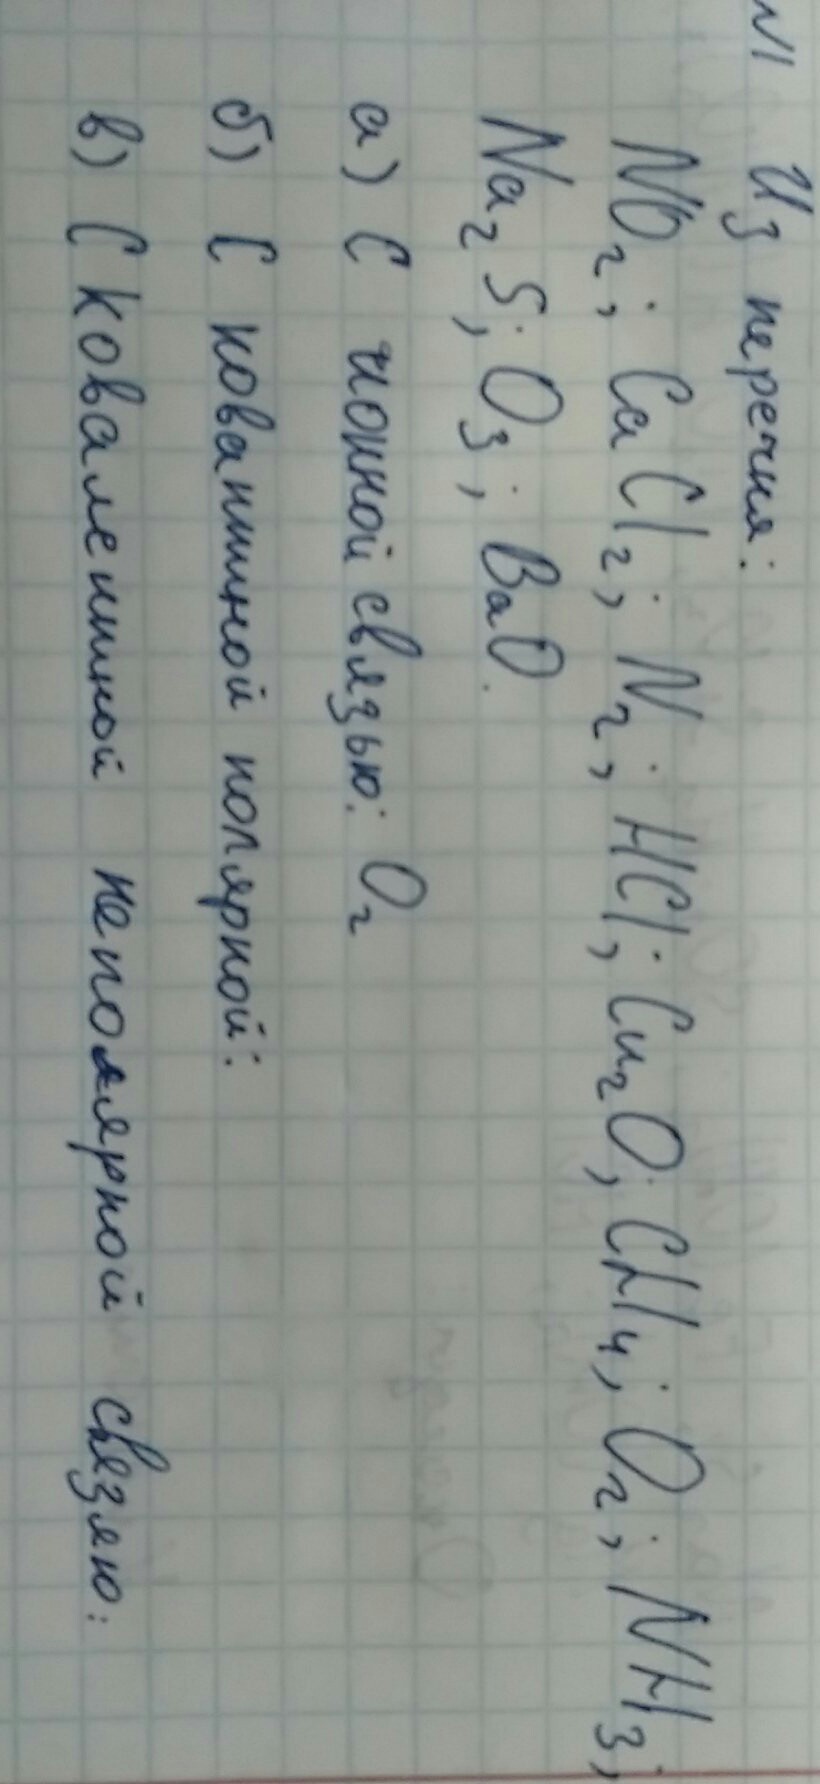 N1 Из перечня:
NO₂; CaCl₂; N₂; HCl; Cu₂O; CH₄; O₂; NH₃;
Na₂S; O₃; BaO.
а) С ионной связью: O₂
б) С ковантной полярной:
в) С ковалентной неполярной связяю: